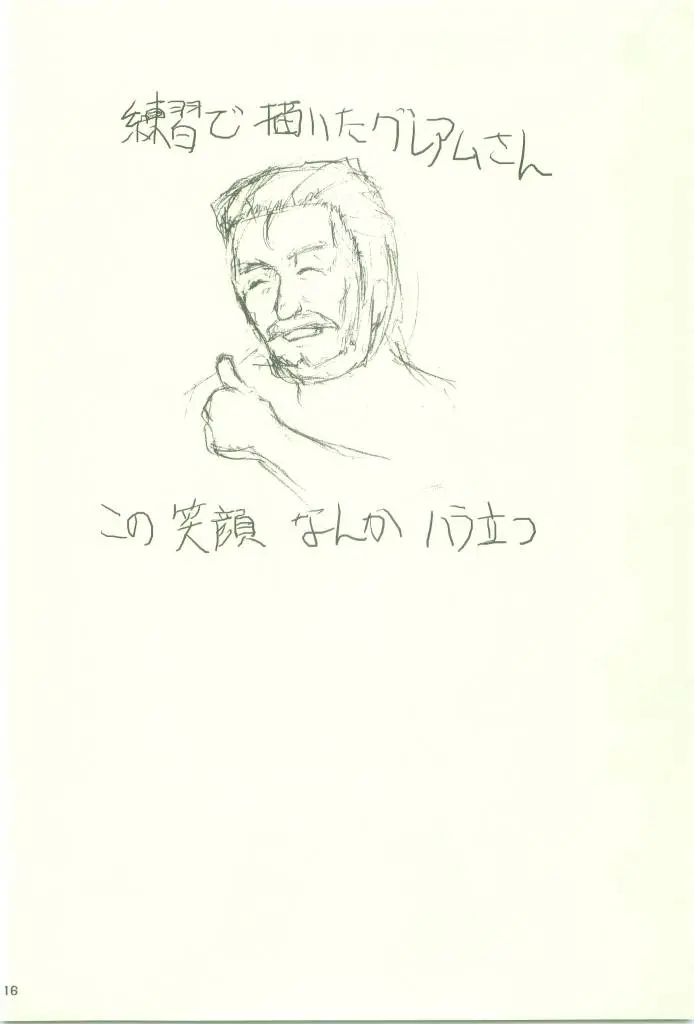 練習で描いたグレアムさん
この笑顔 なんか ハラ立つ
16